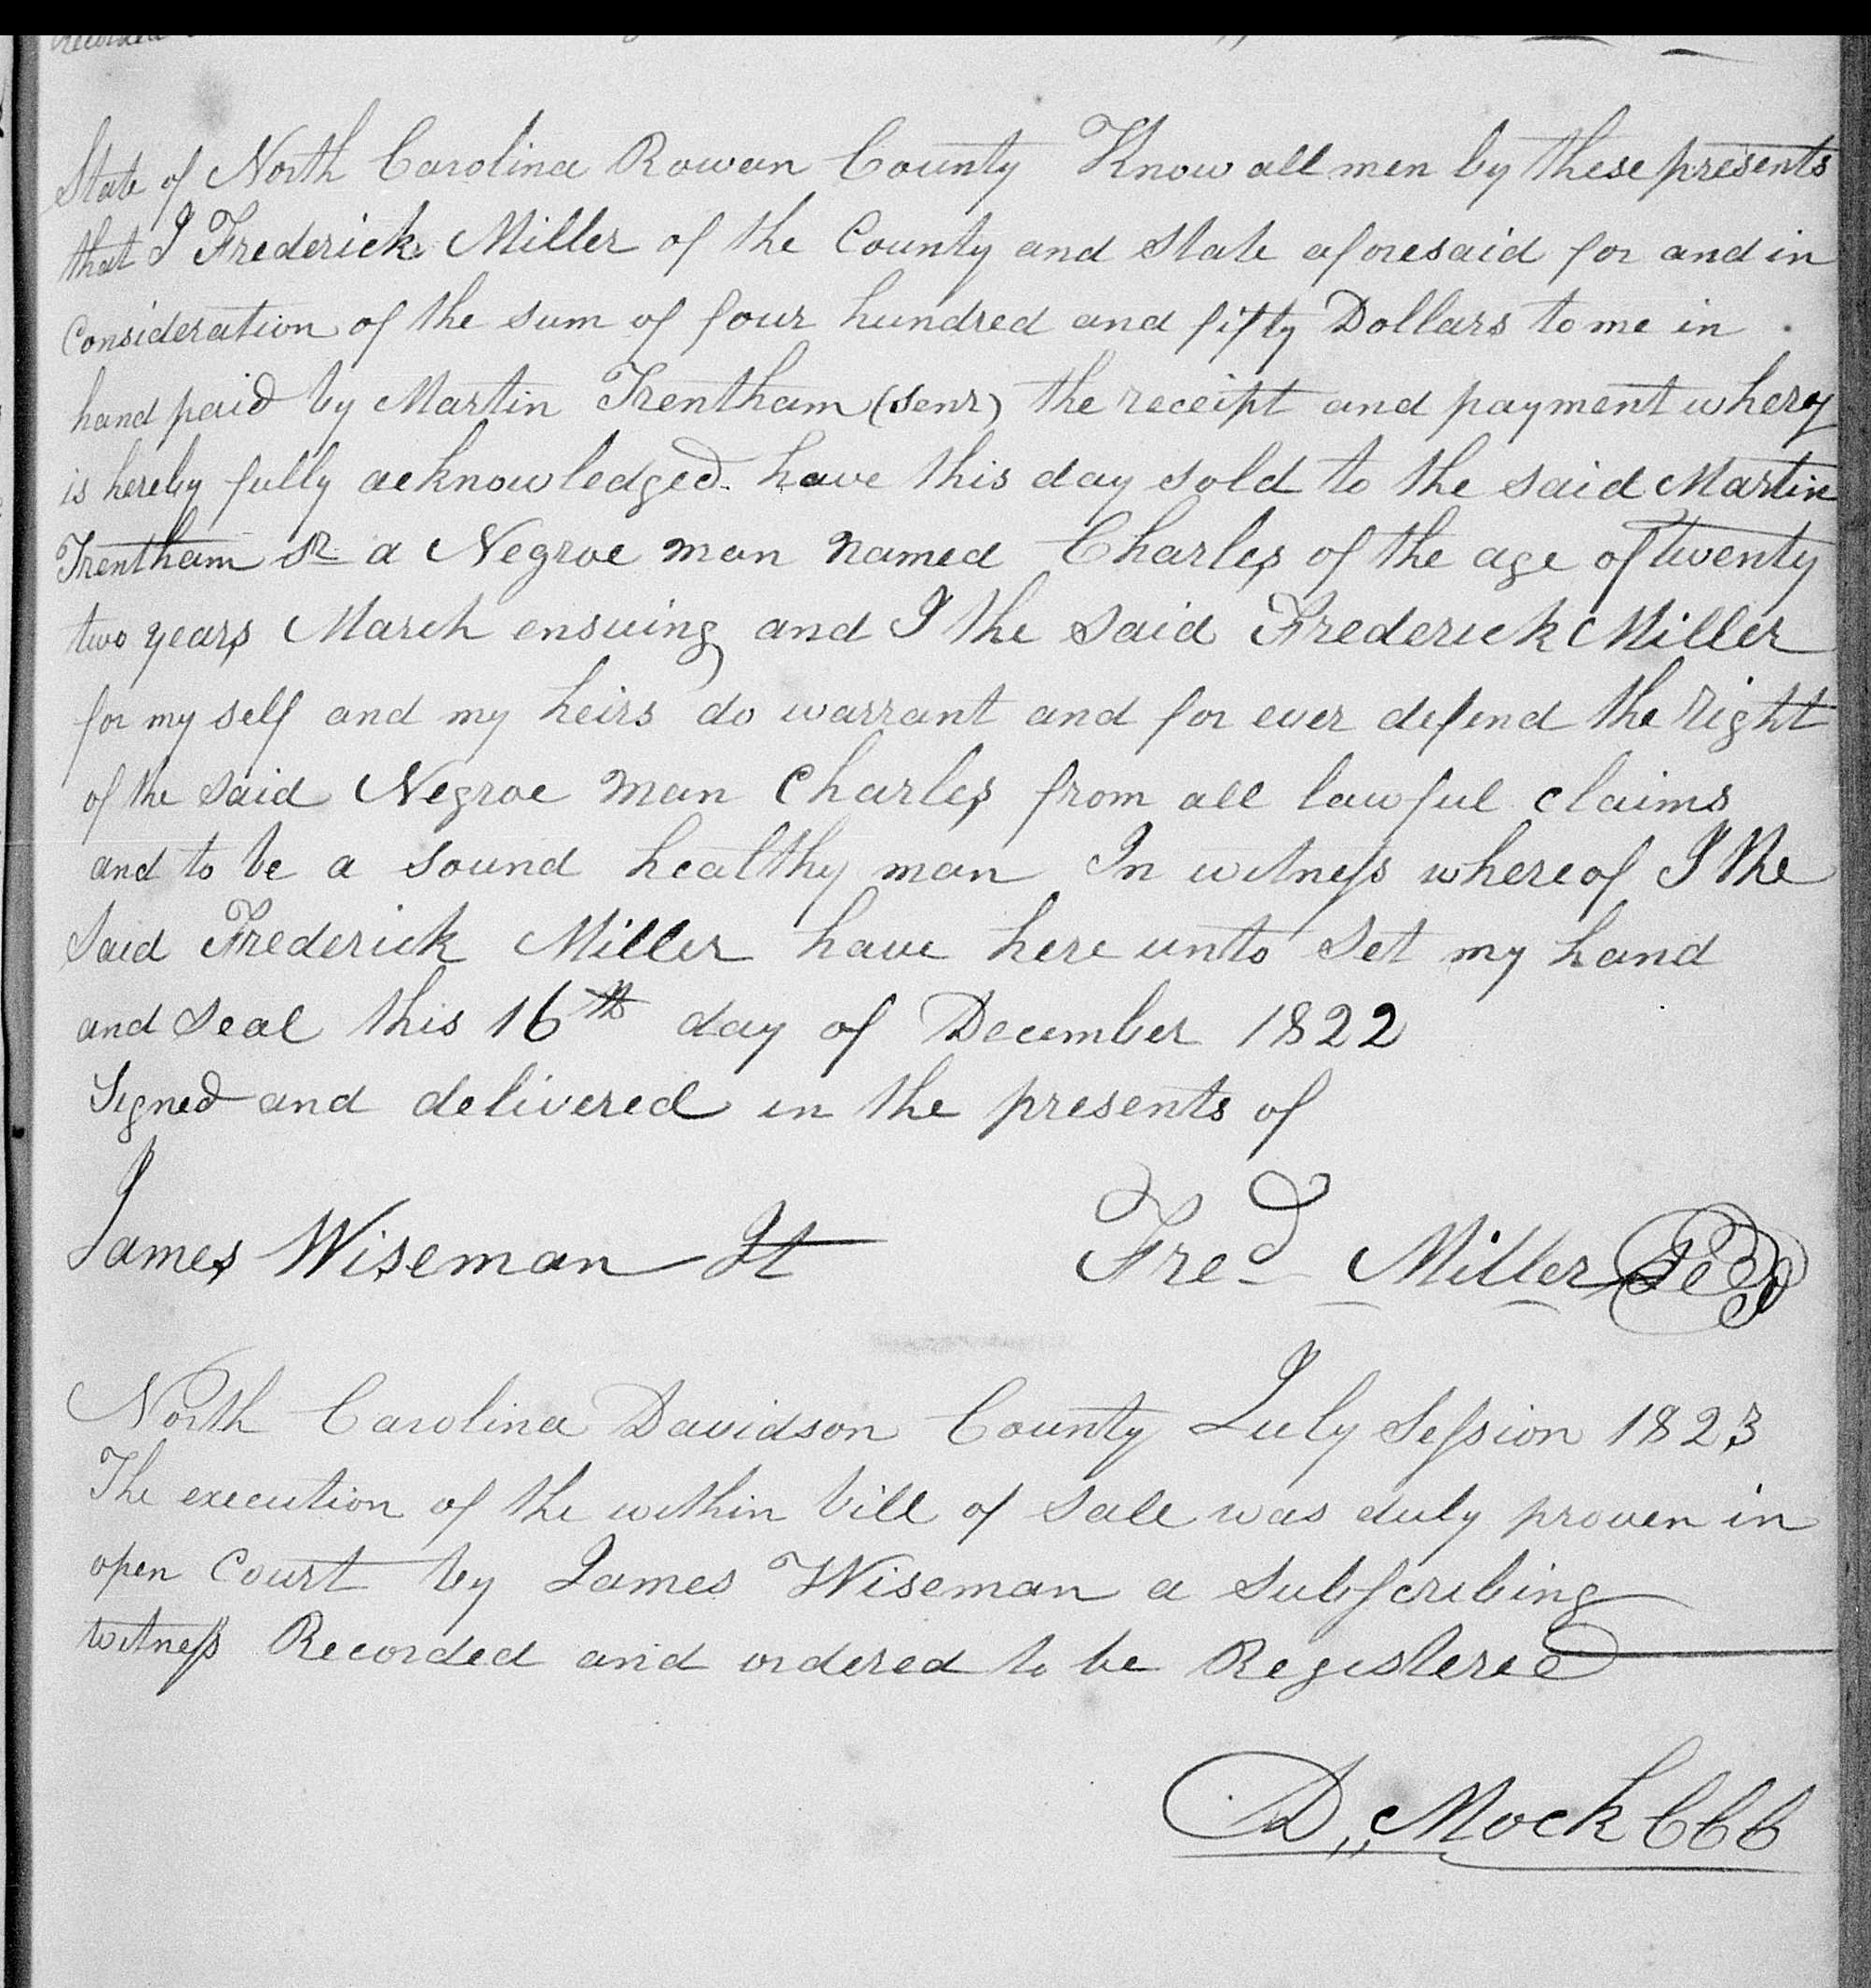 recorded
State of North Carolina Rowan County Know all men by these presents
that I Frederick Miller of the County and State aforesaid for and in
Consideration of the sum of four hundred and fifty Dollars to me in
hand paid by Martin Trentham (senr) the receipt and payment wherof
is hereby fully acknowledged have this day sold to the said Martin
Trentham Sr a Negroe man named Charles of the age of twenty
two years March ensuing and I the said Frederick Miller
for my self and my heirs do warrant and for ever defend the right
of the said Negroe man Charles from all lawful claims
and to be a sound healthy man In witness whereof I the
Said Frederick Miller have here unto set my hand
and Seal this 16th day of December 1822
Signed and delivered in the presents of
James Wiseman Jt Fred Miller
North Carolina Davidson County July Session 1823
The execution of the within bill of sale was duly proven in
open Court by James Wiseman a Subscribing
witness Recorded and ordered to be Registered
D,, Mock CCC